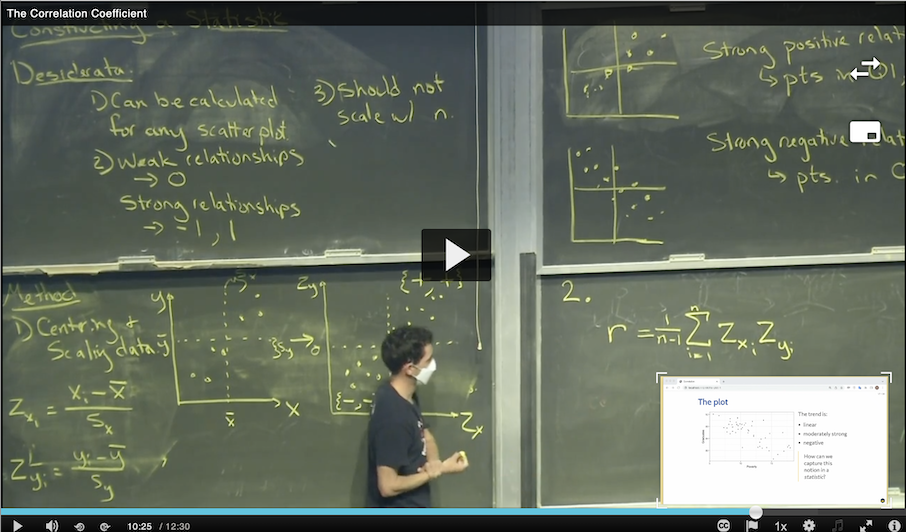 The Correlation Coefficient
Constructing a Statistic
Desiderata
1) Can be calculated
for any scatterplot
2) Weak relationships
→ 0
Strong relationships
→ -1, 1
3) Should not
scale w/ n.
Strong positive
↳ pts in Q1,
Strong negative
↳ pts. in
Method
1) Centring +
Scaling data
Z_{x_i} = (x_i - x̄) / s_x
Z_{y_i} = (y_i - ȳ) / s_y
y
ȳ
x̄
x
s_x
s_y
→
Z_y
0
Z_x
{+, +}
{-, -}
2.
r = 1/(n-1) Σ_{i=1}^{n} Z_{x_i} Z_{y_i}
The plot
The trend is:
• linear
• moderately strong
• negative
How can we
capture this
notion in a
statistic?
10:25 / 12:30
CC
1x